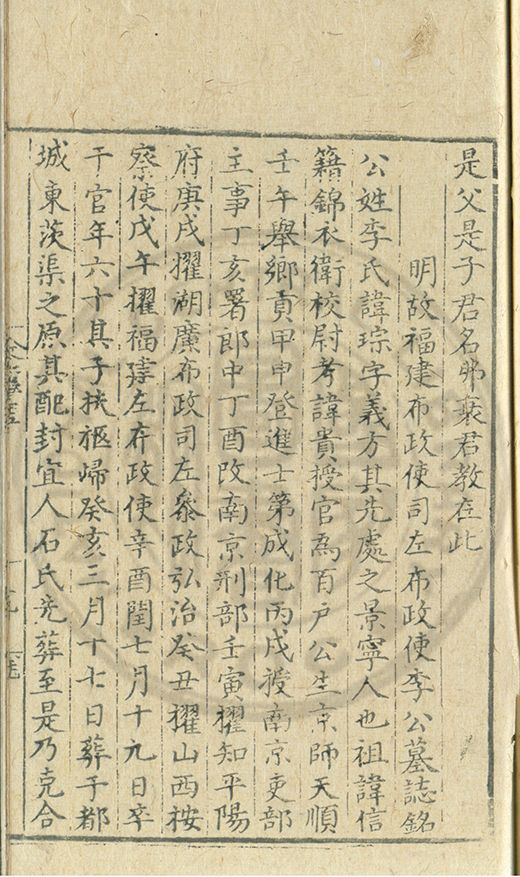 是父是子君名弗衰君教在此
明故福建布政使司左布政使李公墓誌銘
公姓李氏諱琮字義方其先處之景寧人也祖諱信
籍錦衣衛校尉考諱貴授官為百户公生京師天順
壬午舉鄉貢甲申登進士第成化丙戌授南京吏部
主事丁亥署郎中丁酉改南京刑部壬寅擢知平陽
府庚戌擢湖廣布政司左叅政弘治癸丑擢山西按
察使戊午擢福建左布政使辛酉閏七月十九日卒
于官年六十其子扶柩歸癸亥三月十七日葬于都
城東茨渠之原其配封宜人石氏先葬至是乃克合